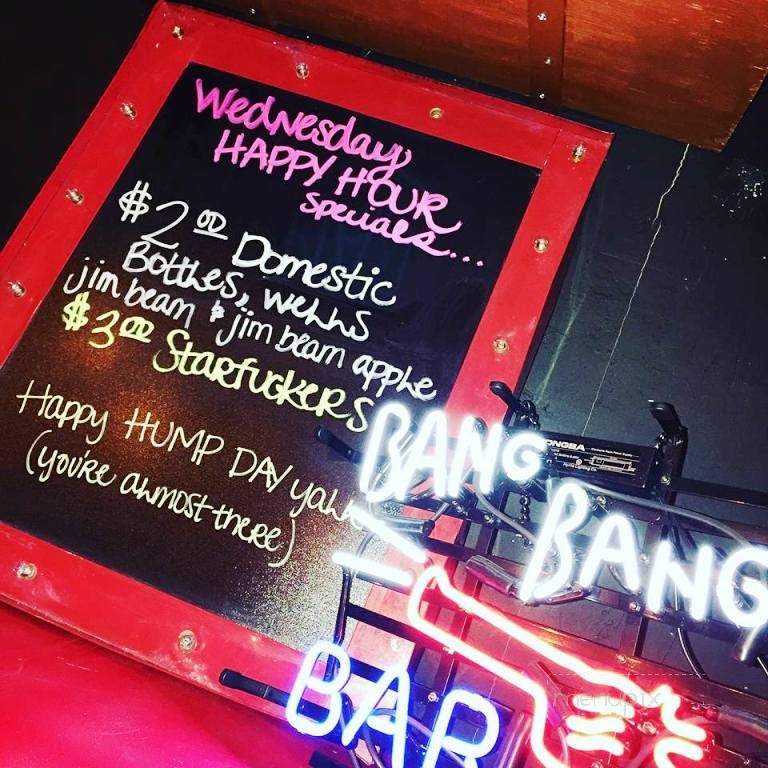 Wednesday
HAPPY HOUR
specials...
$2.00 Domestic
Bottles, wells
jim beam & jim beam apple
$3.00 Starfuckers
Happy HUMP DAY
(you're almost there)
BANG
BANG
BAR
menupix